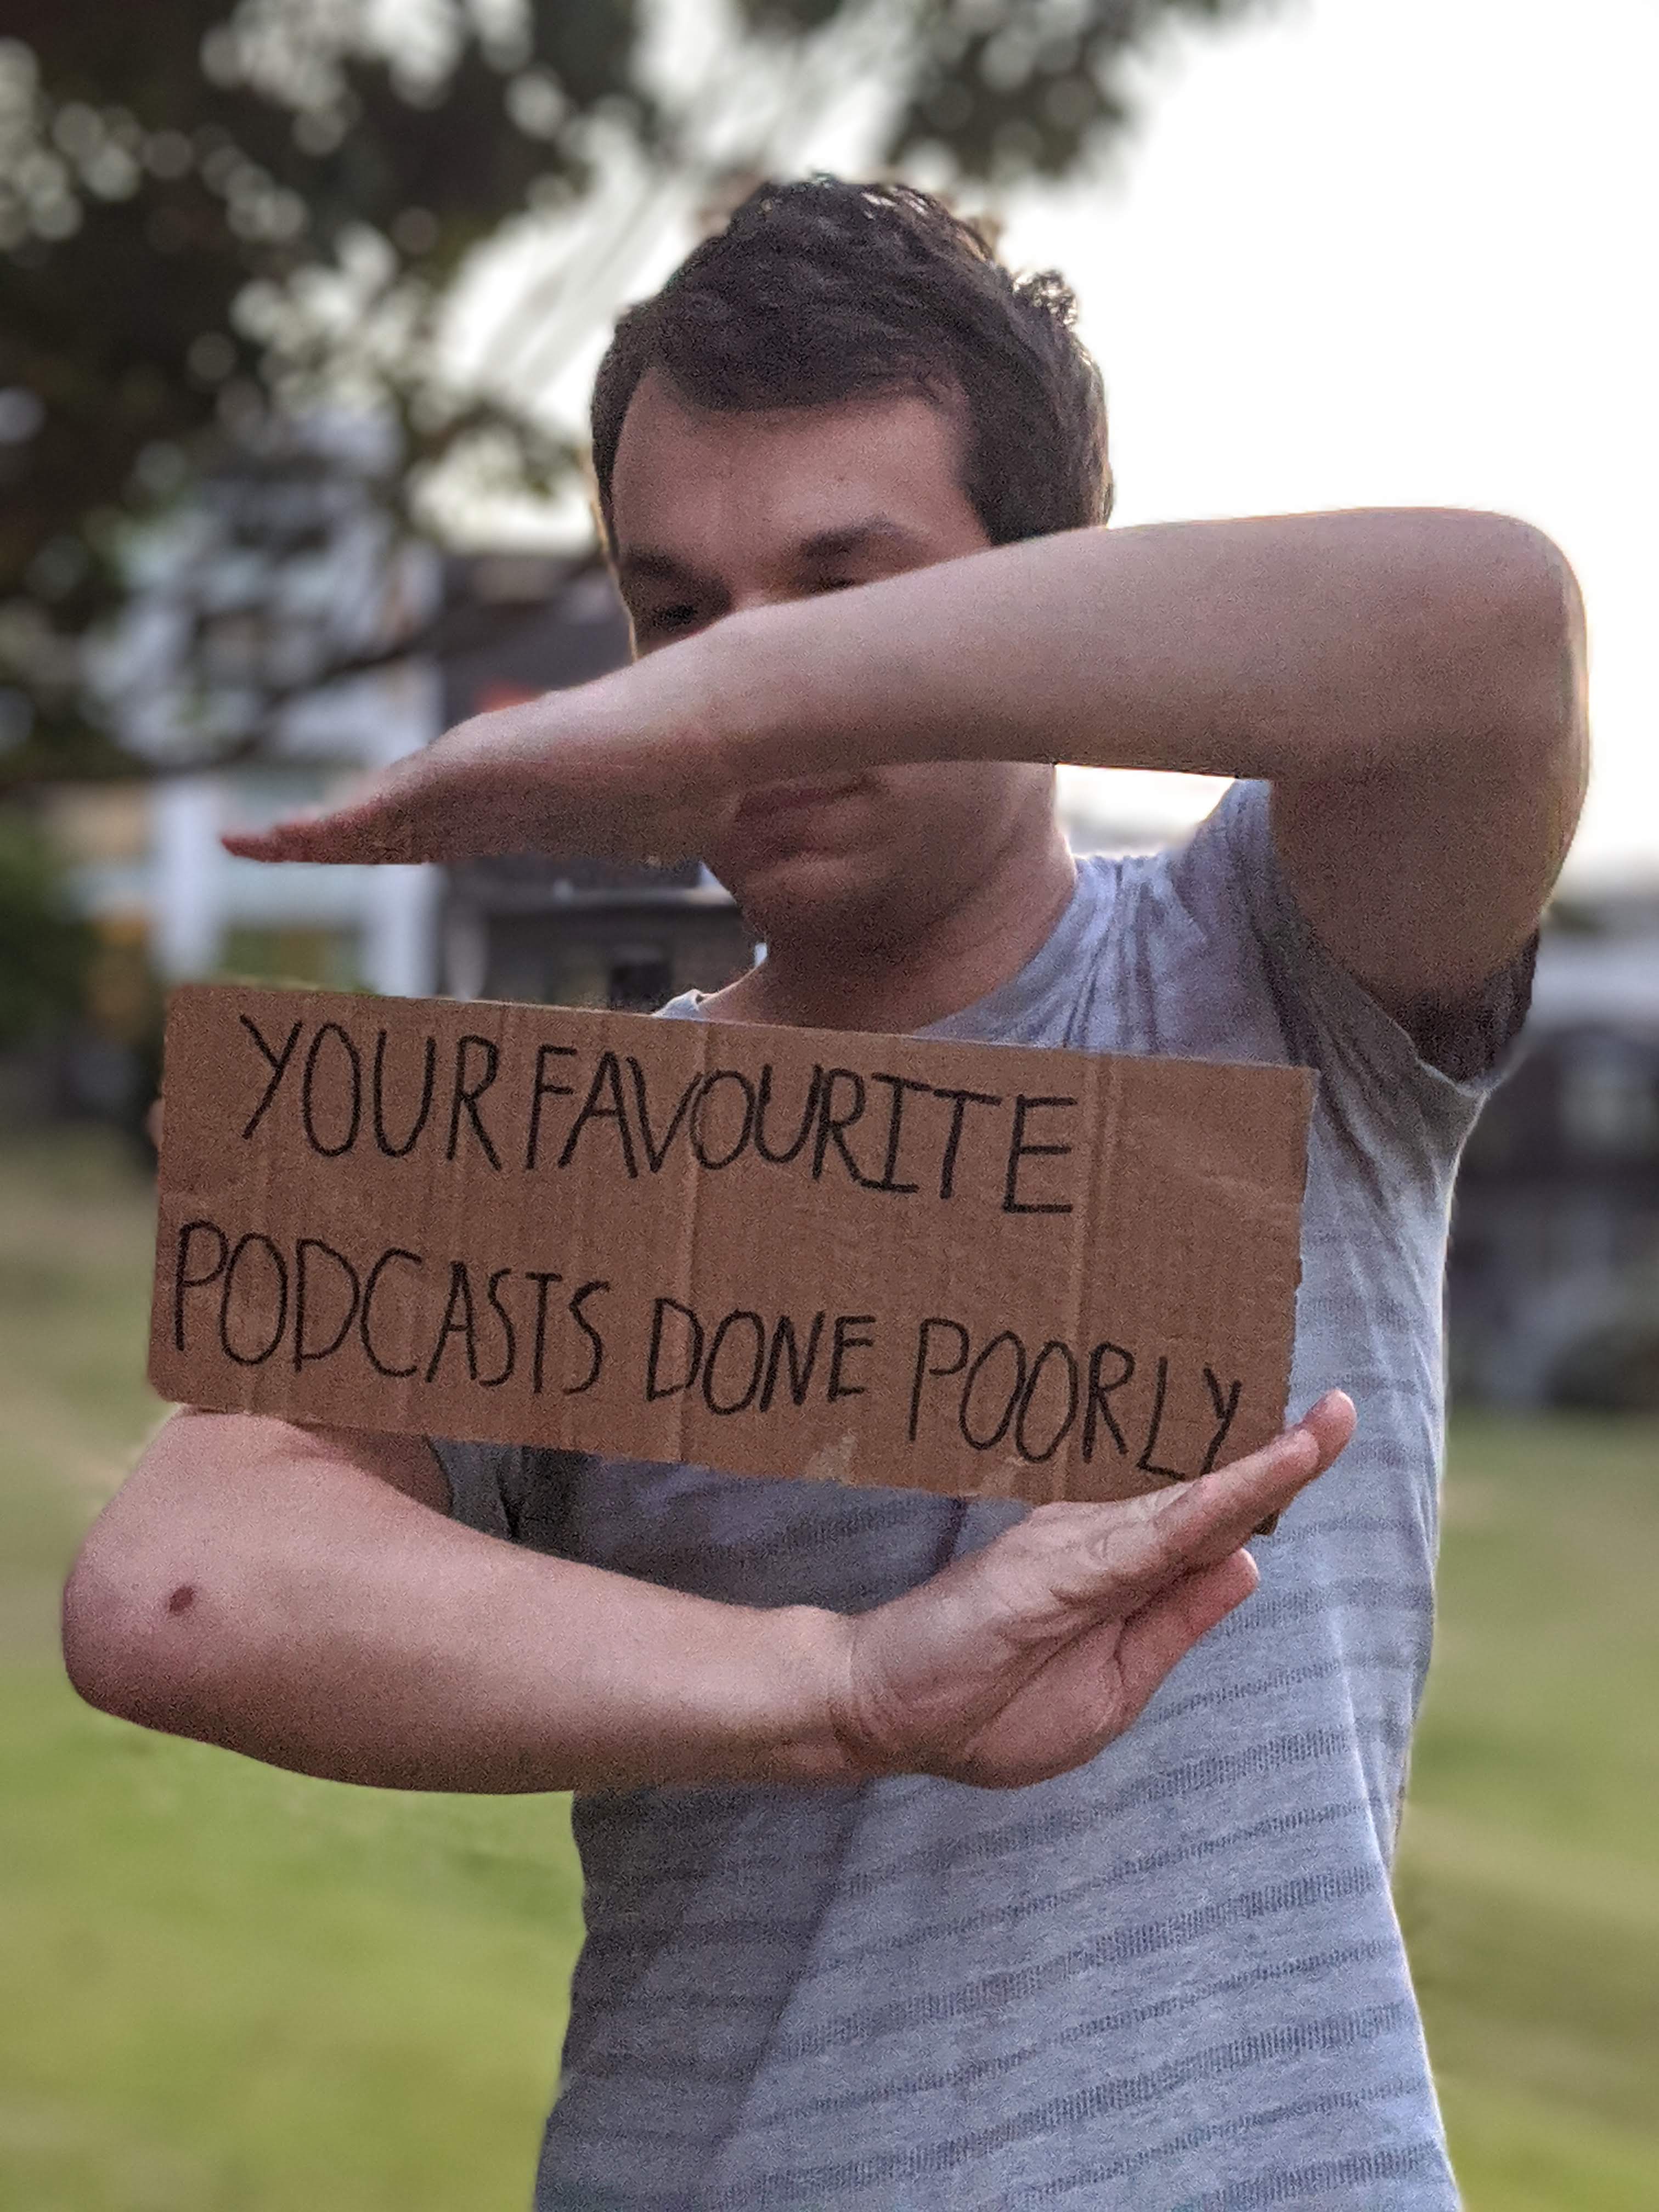 YOUR FAVOURITE
PODCASTS DONE POORLY